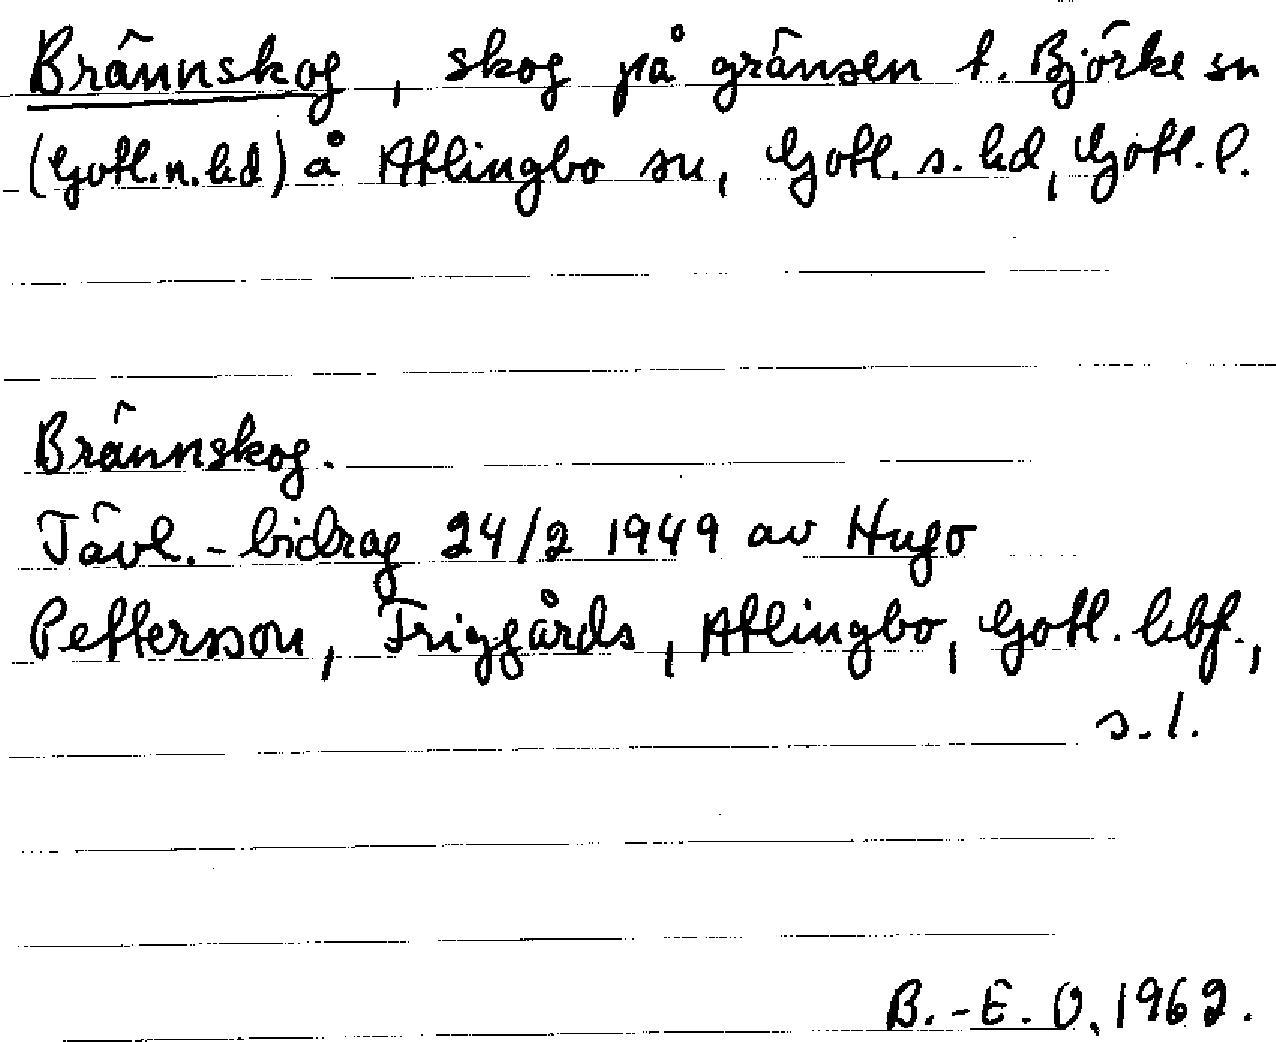 Brännskog, skog på gränsen t. Björke sn
(Gotl.n.hd) å Atlingbo sn, Gotl. s. hd, Gotl. l.
Brännskog.
Tävl.-bidrag 24/2 1949 av Hugo
Pettersson, Friggårds, Atlingbo, Gotl. hbf.,
s.l.
B.-E. O. 1962.